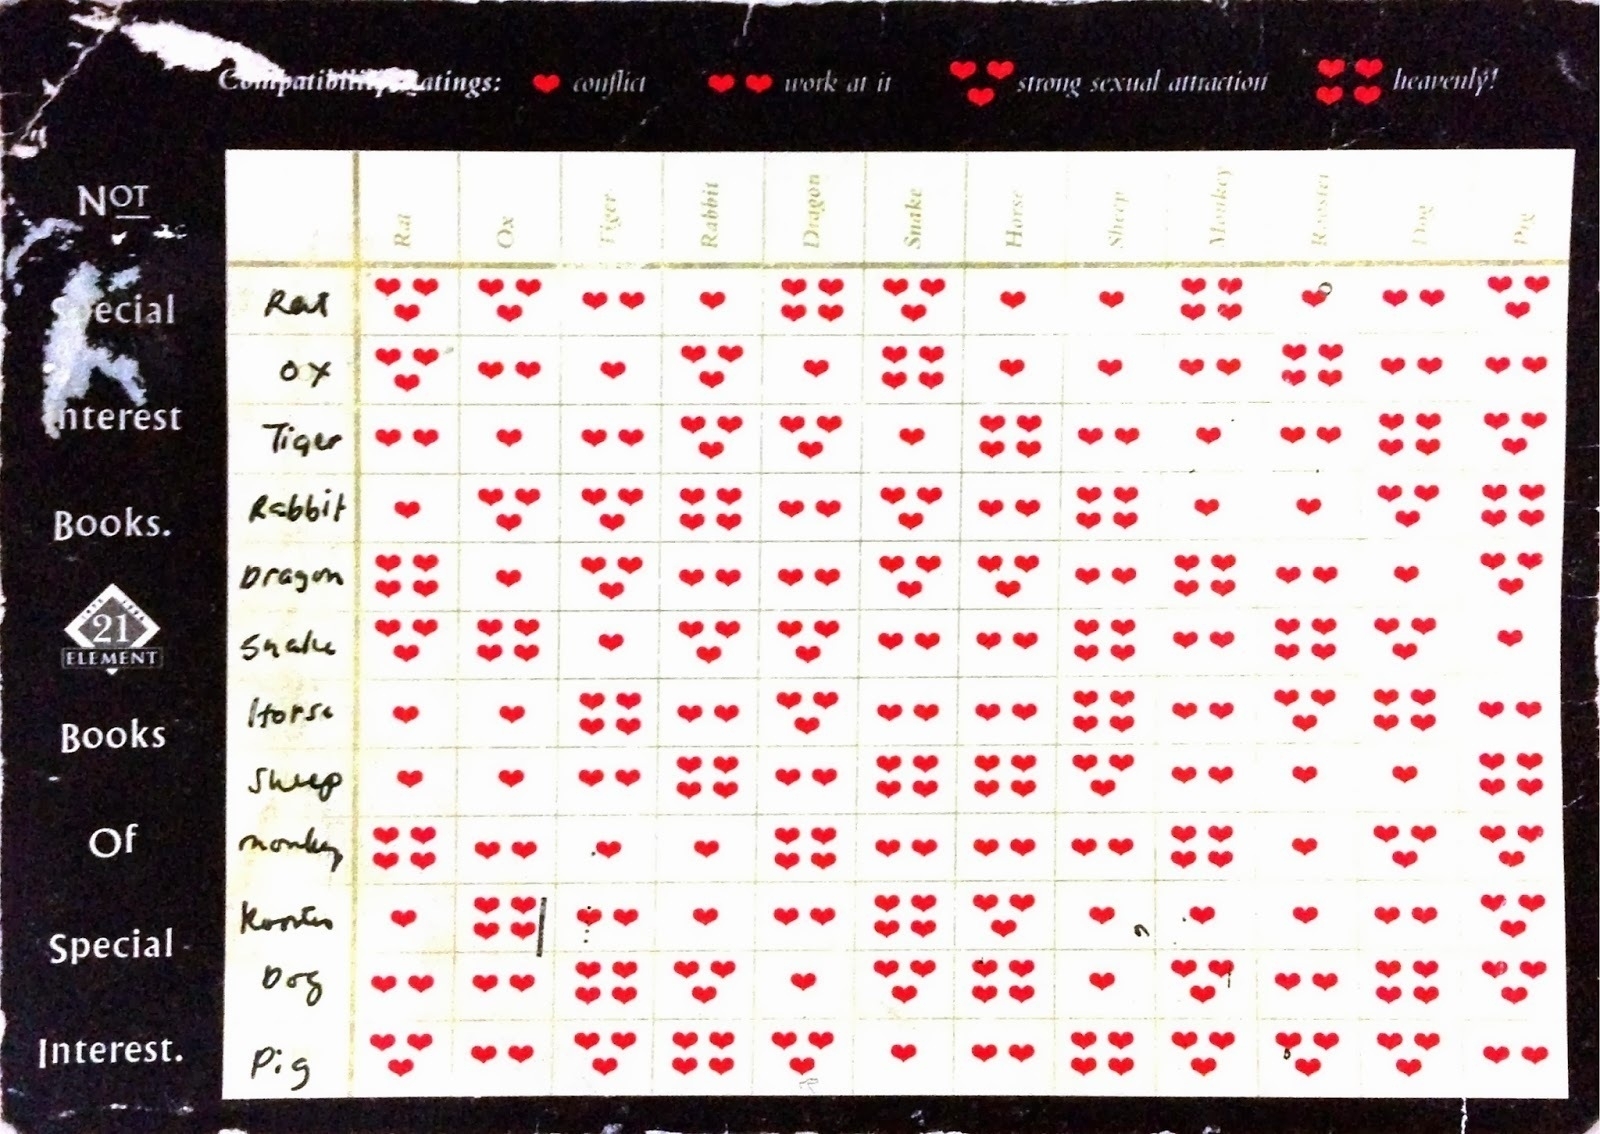 Compatibility Ratings: conflict work at it strong sexual attraction heavenly!
NOT
Special
Interest
Books.
21
ELEMENT
Books
Of
Special
Interest.
Rat Ox Tiger Rabbit Dragon Snake Horse Sheep Monkey Rooster Dog Pig
Rat
OX
Tiger
Rabbit
Dragon
Snake
Horse
Sheep
monkey
Rooster
Dog
Pig